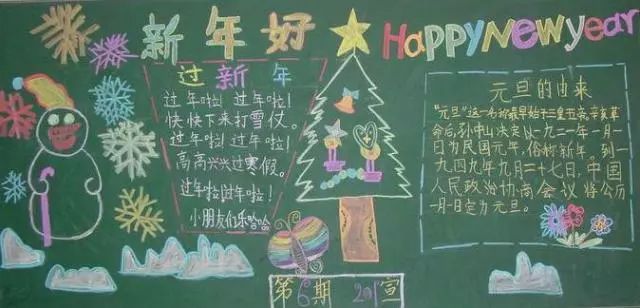 新年好
HAPPY New year
过新年
过年啦！过年啦！
快快下来打雪仗。
过年啦！过年啦！
高高兴兴过寒假。
过年啦！过年啦！
小朋友们乐哈哈
元旦的由来
"元旦"这一名称最早始于三皇五帝，辛亥革
命后，孙中山决定以一九二一年一月一
日为民国元年，俗称新年，到一
九四九年九月二十七日，中国
人民政治协商会议将公历
一月一日定为元旦。
第6期
宣